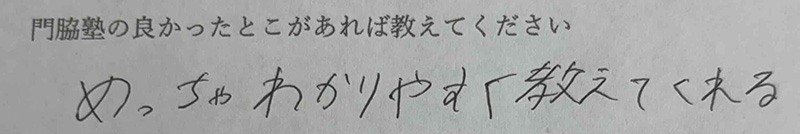 門脇塾の良かったとこがあれば教えてください
めっちゃわかりやすく教えてくれる